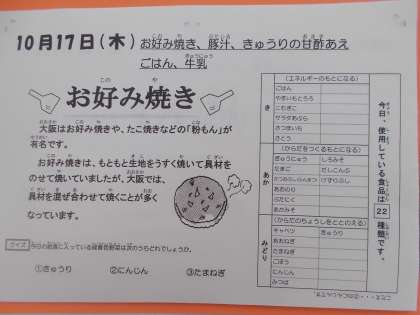 10月17日(木) お好み焼き、豚汁、きゅうりの甘酢あえ
ごはん、牛乳
お好み焼き
大阪はお好み焼きや、たこ焼きなどの「粉もん」が
有名です。
お好み焼きは、もともと生地をうすく焼いて具材を
のせて焼いていましたが、大阪では、
具材を混ぜ合わせて焼くことが多く
なっています。
クイズ 今日の給食に入っている緑黄色野菜は次のうちどれでしょうか。
①きゅうり ②にんじん ③たまねぎ
今日、使用している食品は22種類です。
き
(エネルギーのもとになる)
ごはん
やまいもとろろ
こむぎこ
サラダあぶら
さつまいも
さとう
あか
(からだをつくるもとになる)
ぎゅうにゅう しろみそ
たまご だしこんぶ
けずりぶし
あおのり
ぶたにく
あかみそ
みどり
(からだのちょうしをととのえる)
キャベツ きゅうり
あおねぎ
たまねぎ
ごぼう
にんじん
みつば